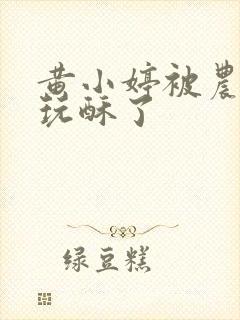 黄小婷被農
玩酥了
绿豆糕